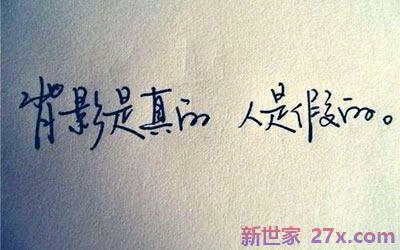 背影是真的 人是假的。
新世家 27x.com